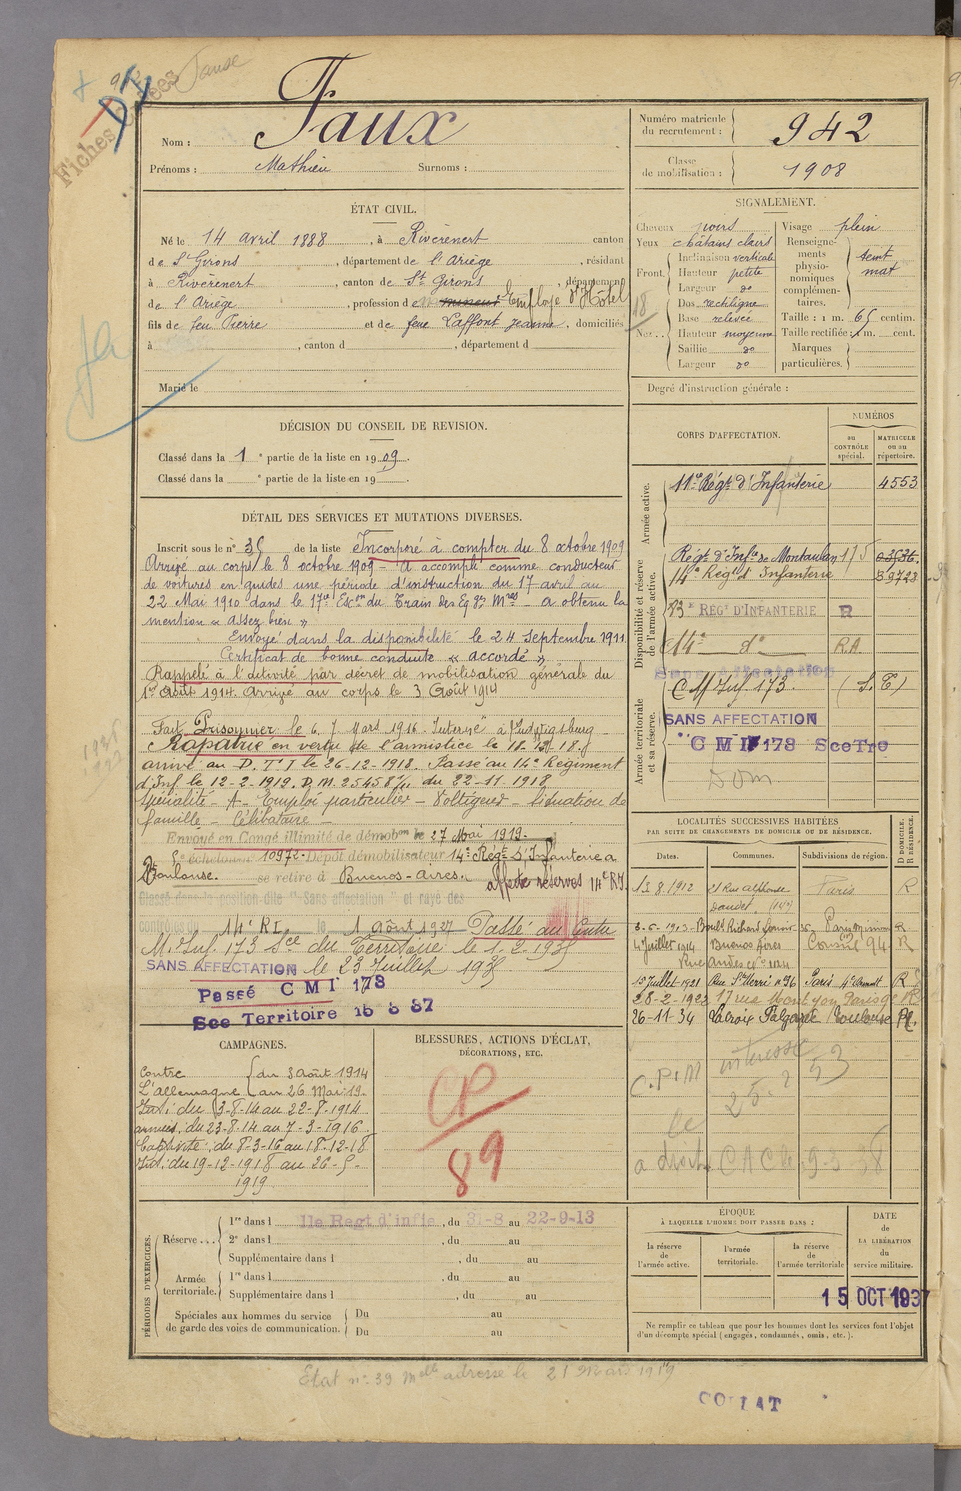 Fiches
Nom : Faux
Prénoms : Mathieu Surnoms :
Numéro matricule du recrutement : 942
Classe de mobilisation : 1908
ÉTAT CIVIL.
Né le 14 avril 1888, à Rivèrenert canton
de St Girons, département de l'Ariège, résidant
à Rivèrenert, canton de St Girons, département
de l'Ariège, profession de mineur Employé d'Hôtel
fils de feu Pierre et de feue Laffont Jeanne, domiciliés
à , canton d , département d
Marié le
SIGNALEMENT.
Cheveux noirs
Yeux châtains clairs
Front. Inclinaison verticale
Hauteur petite
Largeur do
Nez.. Dos rectiligne
Base relevée
Hauteur moyenne
Saillie do
Largeur do
Visage plein
Renseignements physionomiques complémentaires. teint mat
Taille : 1 m. 65 centim.
Taille rectifiée : 1 m. cent.
Marques particulières.
Degré d'instruction générale :
DÉCISION DU CONSEIL DE REVISION.
Classé dans la 1e partie de la liste en 1909.
Classé dans la e partie de la liste en 19
DÉTAIL DES SERVICES ET MUTATIONS DIVERSES.
Inscrit sous le n° 35 de la liste Incorporé à compter du 8 octobre 1909
Arrivé au corps le 8 octobre 1909 – A accompli comme conducteur
de voitures en guides une période d'instruction du 17 avril au
22 Mai 1910 dans le 17e Escon du Train des Eq. a obtenu la
mention « assez bien »
Envoyé dans la disponibilité le 24 Septembre 1911
Certificat de bonne conduite « accordé »
Rappelé à l'activité par décret de mobilisation générale du
1er Août 1914. Arrivé au corps le 3 Août 1914
Fait Prisonnier le 6, 7 Mars 1916 Interné à Ludwigsburg
Rapatrié en vertu de l'armistice le 18.12.18.
arrivé au D.T.I le 26-12-1918. Passé au 14e Régiment
d'Inf. le 12-2-1919. D.M. du 22-11-1918
spécialité – A – Emploi particulier – Voltigeur – Situation de
famille – Célibataire –
Envoyé en Congé illimité de démobon le 27 Mai 1919.
échelon no 10972 - Dépôt démobilisateur 14e Régt d'Infanterie à
Toulouse. se retire à Buenos-Aires. affecté réserves 14e RI
Classé dans la position dite "Sans affectation" et rayé des
contrôles du 14e RI. le 1 Août 1927 Passé au Centre
M. Inf. 173 Sce du Territoire le 1.2.1935
SANS AFFECTATION le 23 Juillet 1935
Passé CMI 173
Sce Territoire 15 3 37
CORPS D'AFFECTATION.
NUMÉROS
au CONTRÔLE spécial.
MATRICULE ou au répertoire.
Armée active.
11e Régt d'Infanterie 4553
Disponibilité et réserve de l'armée active.
Régt d'Infie de Montauban
14e Régt d'Infanterie
RÉGt D'INFANTERIE R
14e do RA
Sans Affectation
Armée territoriale et sa réserve.
C M Inf. 173. (S.T)
SANS AFFECTATION
CMI 173 Sce Tre
Dom
LOCALITÉS SUCCESSIVES HABITÉES
PAR SUITE DE CHANGEMENTS DE DOMICILE OU DE RÉSIDENCE.
Dates. Communes. Subdivisions de région. D DOMICILE. R RÉSIDENCE.
13.8.1912 21 Rue Alphonse Daudet, (14e) Paris R
3-6-1913 Bould Richard Lenoir R
4 Juillet 1914 Buenos Aires Consul 94 R
Rue Andes no
19 Juillet 1921 Rue St Merri no 96 Paris 4e arrondt R
28-2-1922 17 rue Montyon Paris 9e R
26-11-34 Lacroix Falgarde Toulouse
intéressé
C.P.M
le
a droit CAC le 9-3-38
CAMPAGNES.
Contre l'Allemagne du 3 Août 1914 au 26 Mai 19.
Int. : du 3-8-14 au 22-8-1914
armées. du 23-8-14 au 7-3-1916
Captivité : du 8-3-16 au 18-12-18
Int. du 19-12-1918 au 26-5-
1919
BLESSURES, ACTIONS D'ÉCLAT,
DÉCORATIONS, ETC.
CP
89
PÉRIODES D'EXERCICES.
Réserve... 1re dans l 11e Regt d'infie, du 31-8 au 22-9-13
2e dans l , du au
Supplémentaire dans l , du au
Armée territoriale. 1re dans l , du au
Supplémentaire dans l , du au
Spéciales aux hommes du service de garde des voies de communication. Du au
Du au
ÉPOQUE
À LAQUELLE L'HOMME DOIT PASSER DANS :
la réserve de l'armée active.
l'armée territoriale.
la réserve de l'armée territoriale
DATE de LA LIBÉRATION du service militaire.
15 OCT 1937
Ne remplir ce tableau que pour les hommes dont les services font l'objet
d'un décompte spécial (engagés, condamnés, omis, etc.).
Etat no 39 adresse le 21 Mars 1919